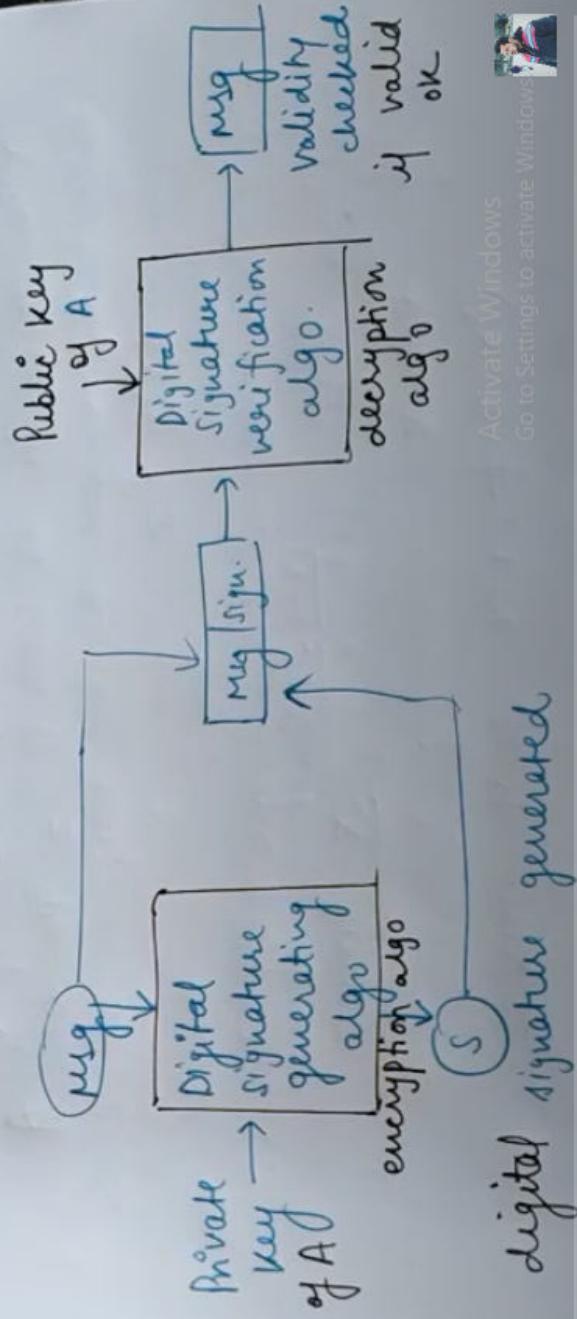 Msg
Private
key
of A
Digital
signature
generating
algo
encryption algo
S
digital signature generated
Msg sign.
Public key
of A
Digital
Signature
verification
algo.
decryption
algo
Msg
validity
checked
if valid
ok
Activate Windows
Go to Settings to activate Windows